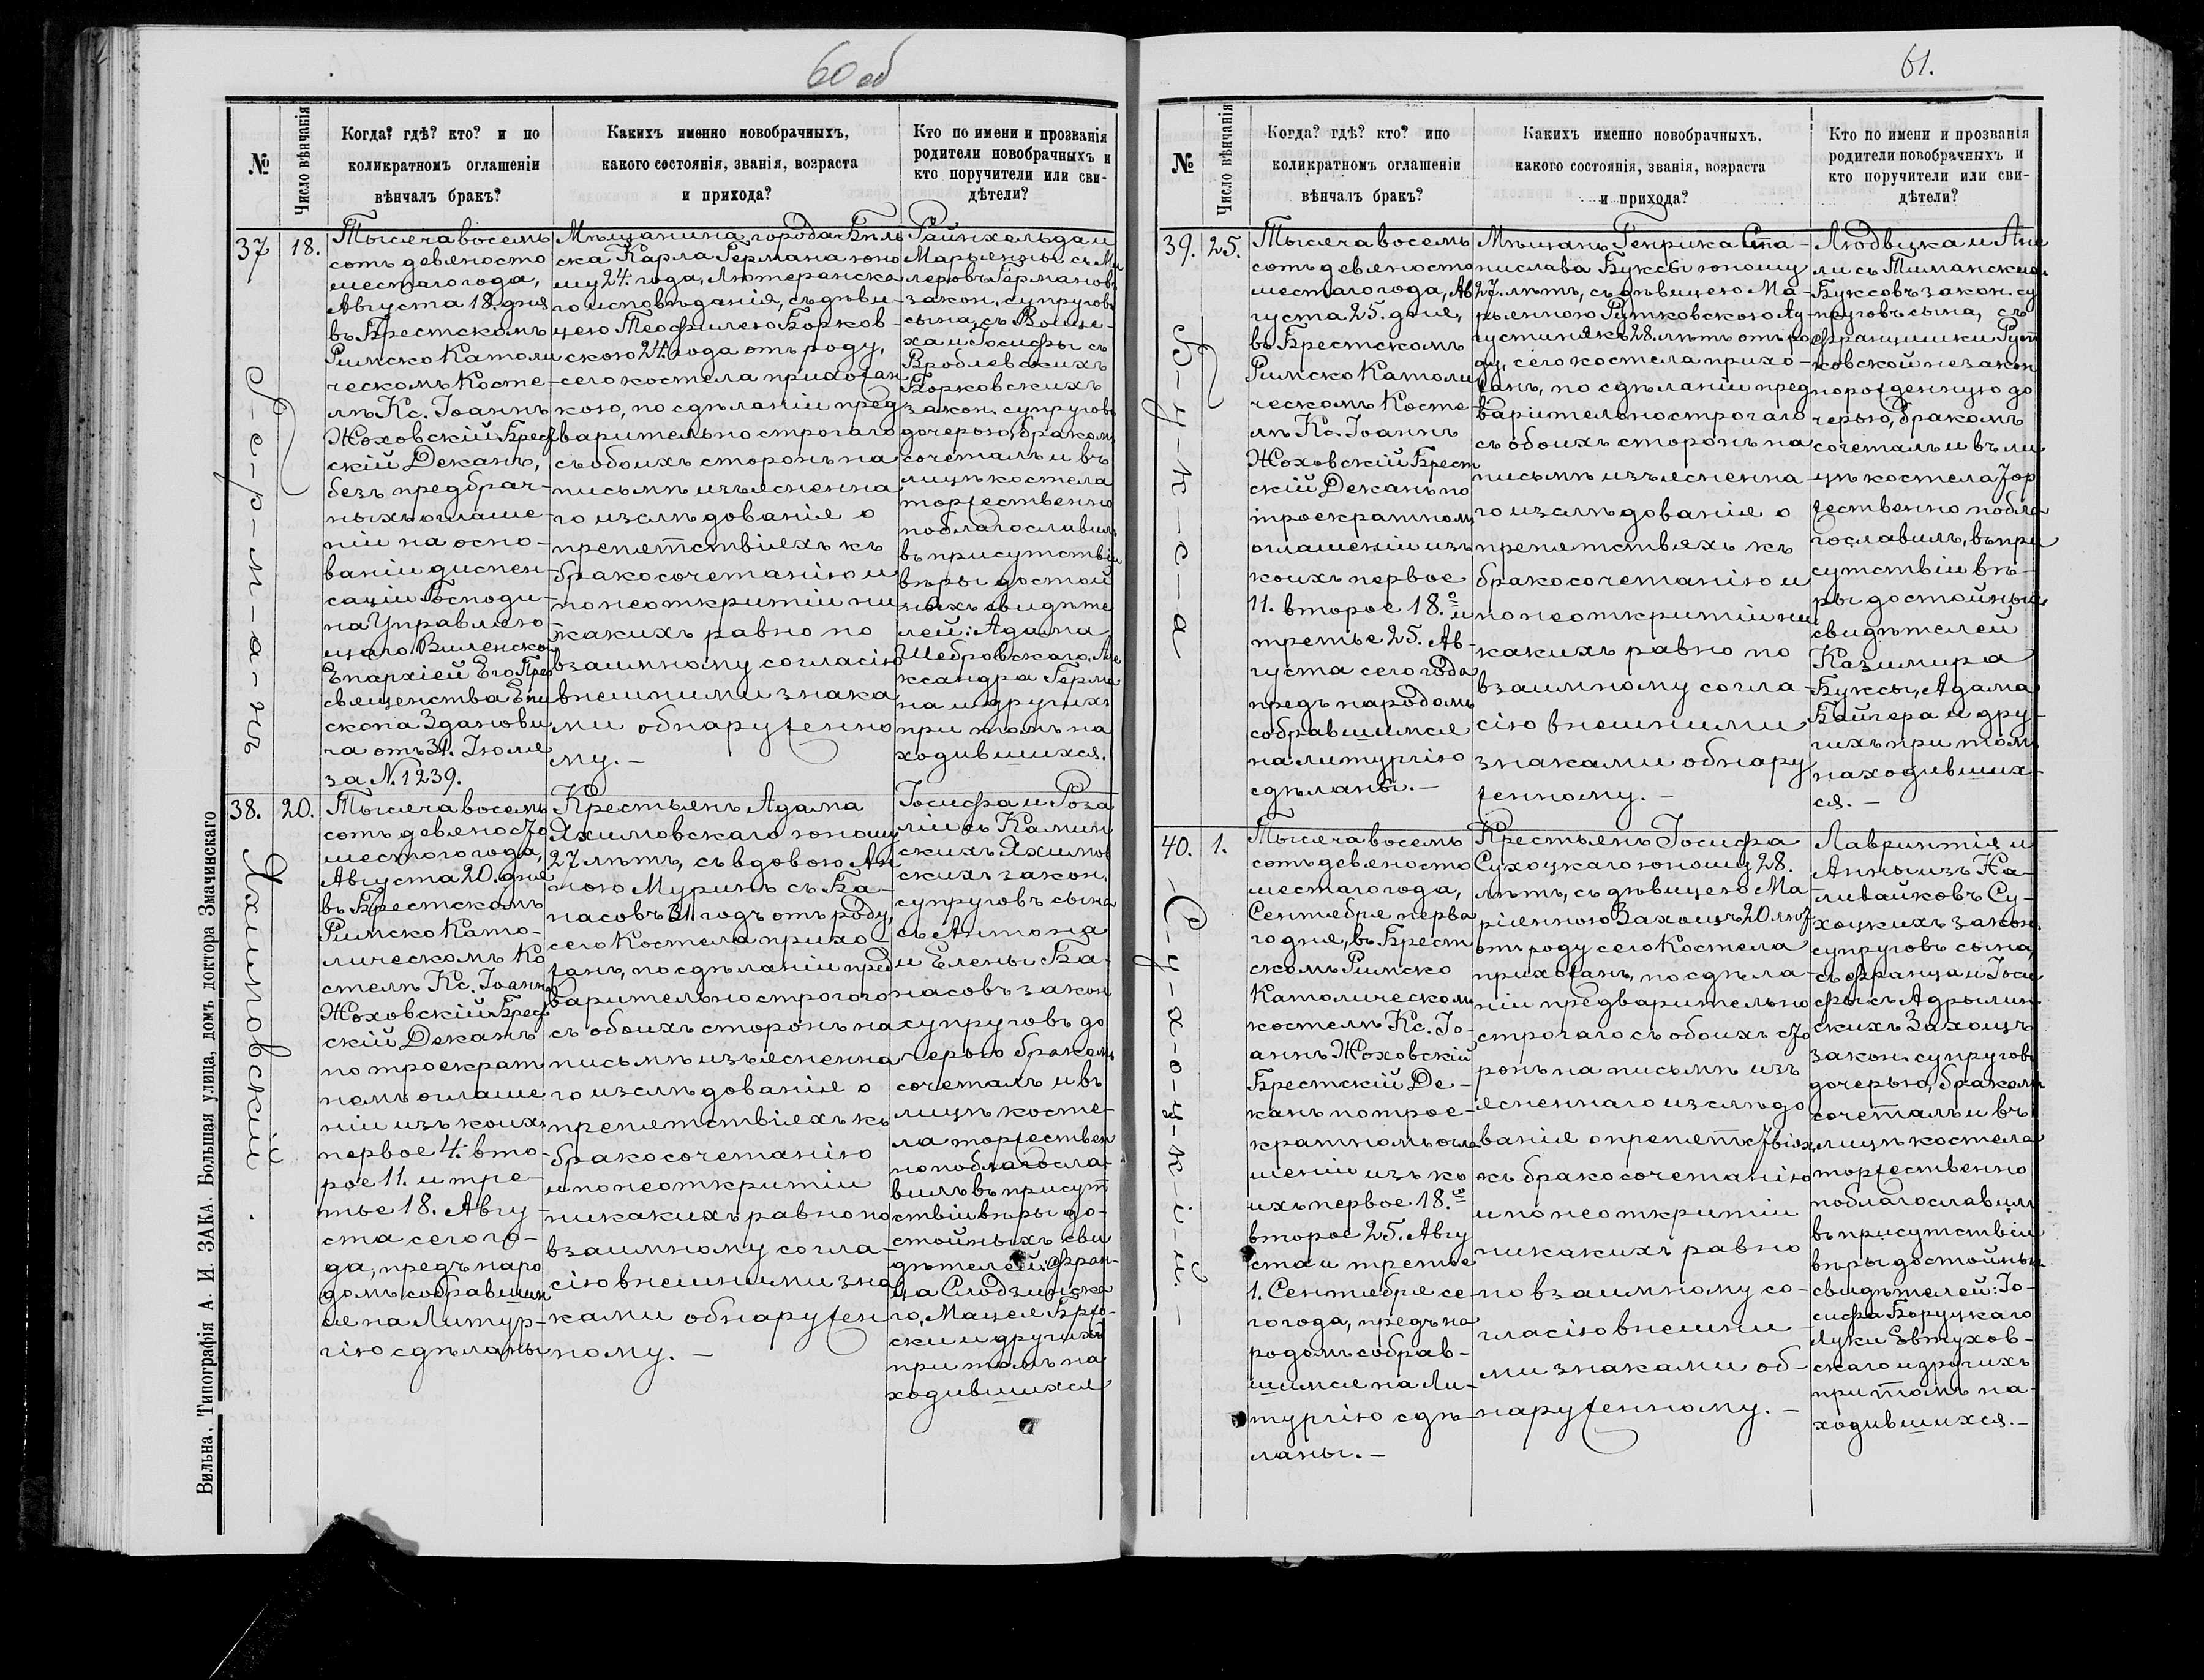 60 об
№
Число вѣнчанія
Когда? гдѣ? кто? и по
коликратномъ оглашеніи
вѣнчалъ бракъ?
Какихъ именно новобрачныхъ,
какого состоянія, званія, возраста
и прихода?
Кто по имени и прозванія
родители новобрачныхъ и
кто поручители или сви-
дѣтели?
37
18.
Г-е-р-м-а-нъ
Тысяча восемь
сотъ девяносто
шестаго года,
Августа 18. дня
въ Брестскомъ
Римско Католи
ческомъ Косте-
лѣ Кс. Іоаннъ
Жоховскій Брест
скій Деканъ,
безъ предбрач-
ныхъ оглаше-
ній на осно-
ваніи диспен-
саціи Господи-
на Управляю
щаго Виленскою
Епархіей Его Прео
священства Епи
скопа Зданови
ча отъ 31. Іюля
за №. 1239.
Мѣщанина города Бѣль
ска Карла Германа юно
шу 24. года, Лютеранска
го исповѣданія, съ дѣви-
цею Теофилею Борков-
скою 24. года отъ роду,
сего костела прихожан
кою, по сдѣланіи пред
варительно строгаго
съ обоихъ сторонъ на
письмѣ изъясненна
го изслѣдованія о
препятствіяхъ къ
бракосочетанію и
по неоткритіи ни
какихъ равно по
взаимному согласію
внешними знака
ми обнаруженно
му.-
Райнхольда и
Марьянны съ Ми
леровъ Германовъ
закон. супруговъ
сына, съ Войце-
ха и Іосифы съ
Врoблевскихъ
Борковскихъ
закон. супруговъ
дочерью, бракомъ
сочеталъ и въ
лицѣ костела
торжественно
поблагославилъ
въ присутствіи
вѣры достой
ныхъ свидѣте
лей: Адама
Шебровскаго, Але
ксандра Герма
на и другихъ
при томъ на
ходившихся.
38.
20.
Яхимовскій.
Тысяча восемь
сотъ девяносто
шестого года,
Августа 20. дня
въ Брестскомъ
Римско Като-
лическомъ Ко
стелѣ Кс. Іоаннъ
Жоховскій Брест
скій Деканъ
по троекрат
номъ оглаше
ніи изъ коихъ
первое 4. вто-
рое 11. и тре-
тье 18. Авгу-
ста сего го-
да, предъ наро
домъ собравшим
ся на Литур-
гію сдѣланы
Крестьянъ Адама
Яхимовскаго юношу
27 лѣтъ, съ вдовою Ан
ною Муринъ съ Ба-
насовъ 31. годъ отъ роду,
сего Костела прихо-
жанъ, по сдѣланіи пред
варительно строгого
съ обоихъ сторонъ на
письмѣ изъясненна
го изслѣдованія о
препятствіяхъ къ
бракосочетанію
и по неоткритіи
никакихъ равно по
взаимному согла-
сію внешними зна
ками обнаружен
ному.-
Іосифа и Роза
ліи съ Камин
скихъ Яхимов
скихъ закон.
супруговъ сына
съ Антона
и Елены Ба-
насовъ закон
супруговъ до
черью бракомъ
сочеталъ и въ
лицѣ косте-
ла торжествен
но поблагосла-
вилъ въ присут
ствіи вѣры до-
стойныхъ сви
дѣтелей: Фран-
ца Слодзинска
го, Мацея Бржо-
ски и другихъ
при томъ на
ходившихся
Вильна, Типографія А. И. ЗАКА. Большая улица, домъ доктора Змачинскаго
61.
№
Число вѣнчанія
Когда? гдѣ? кто? ипо
коликратномъ оглашеніи
вѣнчалъ бракъ?
Какихъ именно новобрачныхъ.
какого состоянія, званія, возраста
и прихода?
Кто по имени и прозванія
родители новобрачныхъ и
кто поручители или сви-
дѣтели?
39.
25.
Б-у-к-с-а
Тысяча восемь
сотъ девяносто
шестаго года, Ав
густа 25. дня,
въ Брестскомъ
Римско Католи
ческомъ Косте-
лѣ Кс. Іоаннъ
Жоховскій Брест
скій Деканъ по
троекратномъ
оглашеніи изъ
коихъ первое
11. второе 18.е и
третье 25. Ав-
густа сего года
предъ народомъ
собравшимся
на литургію
сдѣланы.-
Мѣщанъ Генриха Ста-
нислава Буксы юношу
27. лѣтъ, съ дѣвицею Ма-
рьянною Рутковскою Ау-
густинякъ 28. лѣтъ отъ ро
ду, сего костела прихо-
жанъ, по сдѣланіи пред
варительно строгаго
съ обоихъ сторонъ на
письмѣ изъясненна-
го изслѣдованія о
препятствяхъ къ
бракосочетанію и
по неоткритіи ни
какихъ равно по
взаимному согла-
сію внешними
знаками обнару
женному.-
Людвика и Ане
ли съ Тиманскихъ
Буксовъ закон. су
пруговъ сына, съ
Францишки Рут
ковской незакон
порожденную до
черью, бракомъ
сочеталъ и въ ли
цѣ костела тор
жественно побла
гославилъ, въ при
сутствіи вѣ-
ры достойныхъ
свидѣтелей
Казимира
Буксы, Адама
Байгера и дру-
гихъ при томъ
находивших-
ся.-
40.
1.
С-у-х-о-ц-к-і-й.-
Тысяча восемь
сотъ девяносто
шестаго года,
Сентября перва
го дня, въ Брест
скомъ Римско
Католическомъ
костелѣ Кс. Іо-
аннъ Жоховскій
Брестскій Де-
канъ по трое-
кратномъ огла
шеніи изъ ко
ихъ первое 18.е
второе 25. Авгу
ста и третье
1. Сентября се-
го года, предъ на
родомъ собрав-
шимся на Ли-
тургію сдѣ-
ланы.-
Крестьянъ Іосифа
Сухоцкаго юношу 28.
лѣтъ, съ дѣвицею Ма
ріянною Захоцъ 20 лѣт
отъ роду сего Костела
прихожанъ, по сдѣла-
ніи предварительно
строгаго съ обоихъ сто
ронъ на письмѣ изъ
ясненнаго изслѣдо
ванія о препятствіяхъ
къ бракосочетанію
и по неоткритіи
никакихъ равно
по взаимному со-
гласію внешни-
ми знаками об-
наруженному.-
Лаврингтія и
Анны изъ На-
ливайковъ Су-
хоцкихъ закон.
супруговъ сына,
съ Франца и Іоси
фы съ Адрылин
скихъ Захоцъ
закон. супруговъ
дочерью, бракомъ
сочеталъ и въ
лицѣ костела
торжественно
поблагославилъ
въ присутствіи
вѣры достойныхъ
свидѣтелей: Іо-
сифа Боруцкаго
Луки Евтухов-
скаго и другихъ
при томъ на-
ходившихся.-